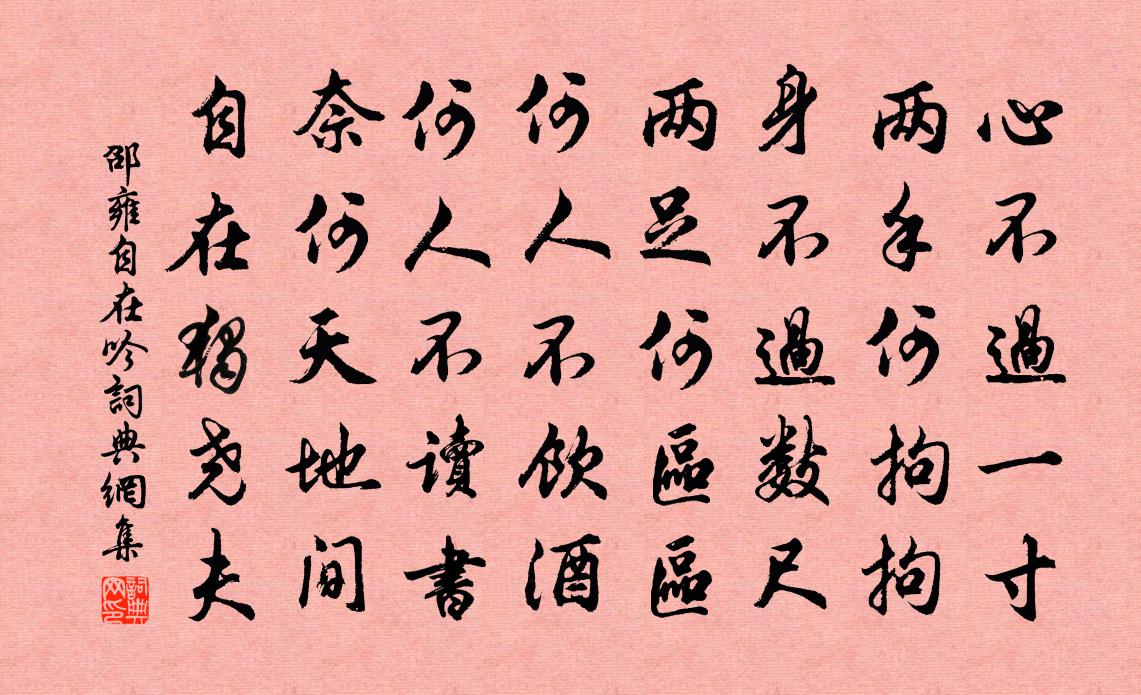 心不過一寸
两手何拘拘
身不過數尺
两足何區區
何人不飲酒
何人不讀書
奈何天地間
自在獨尧夫
邵雍自在吟詞典網集
詞典网印